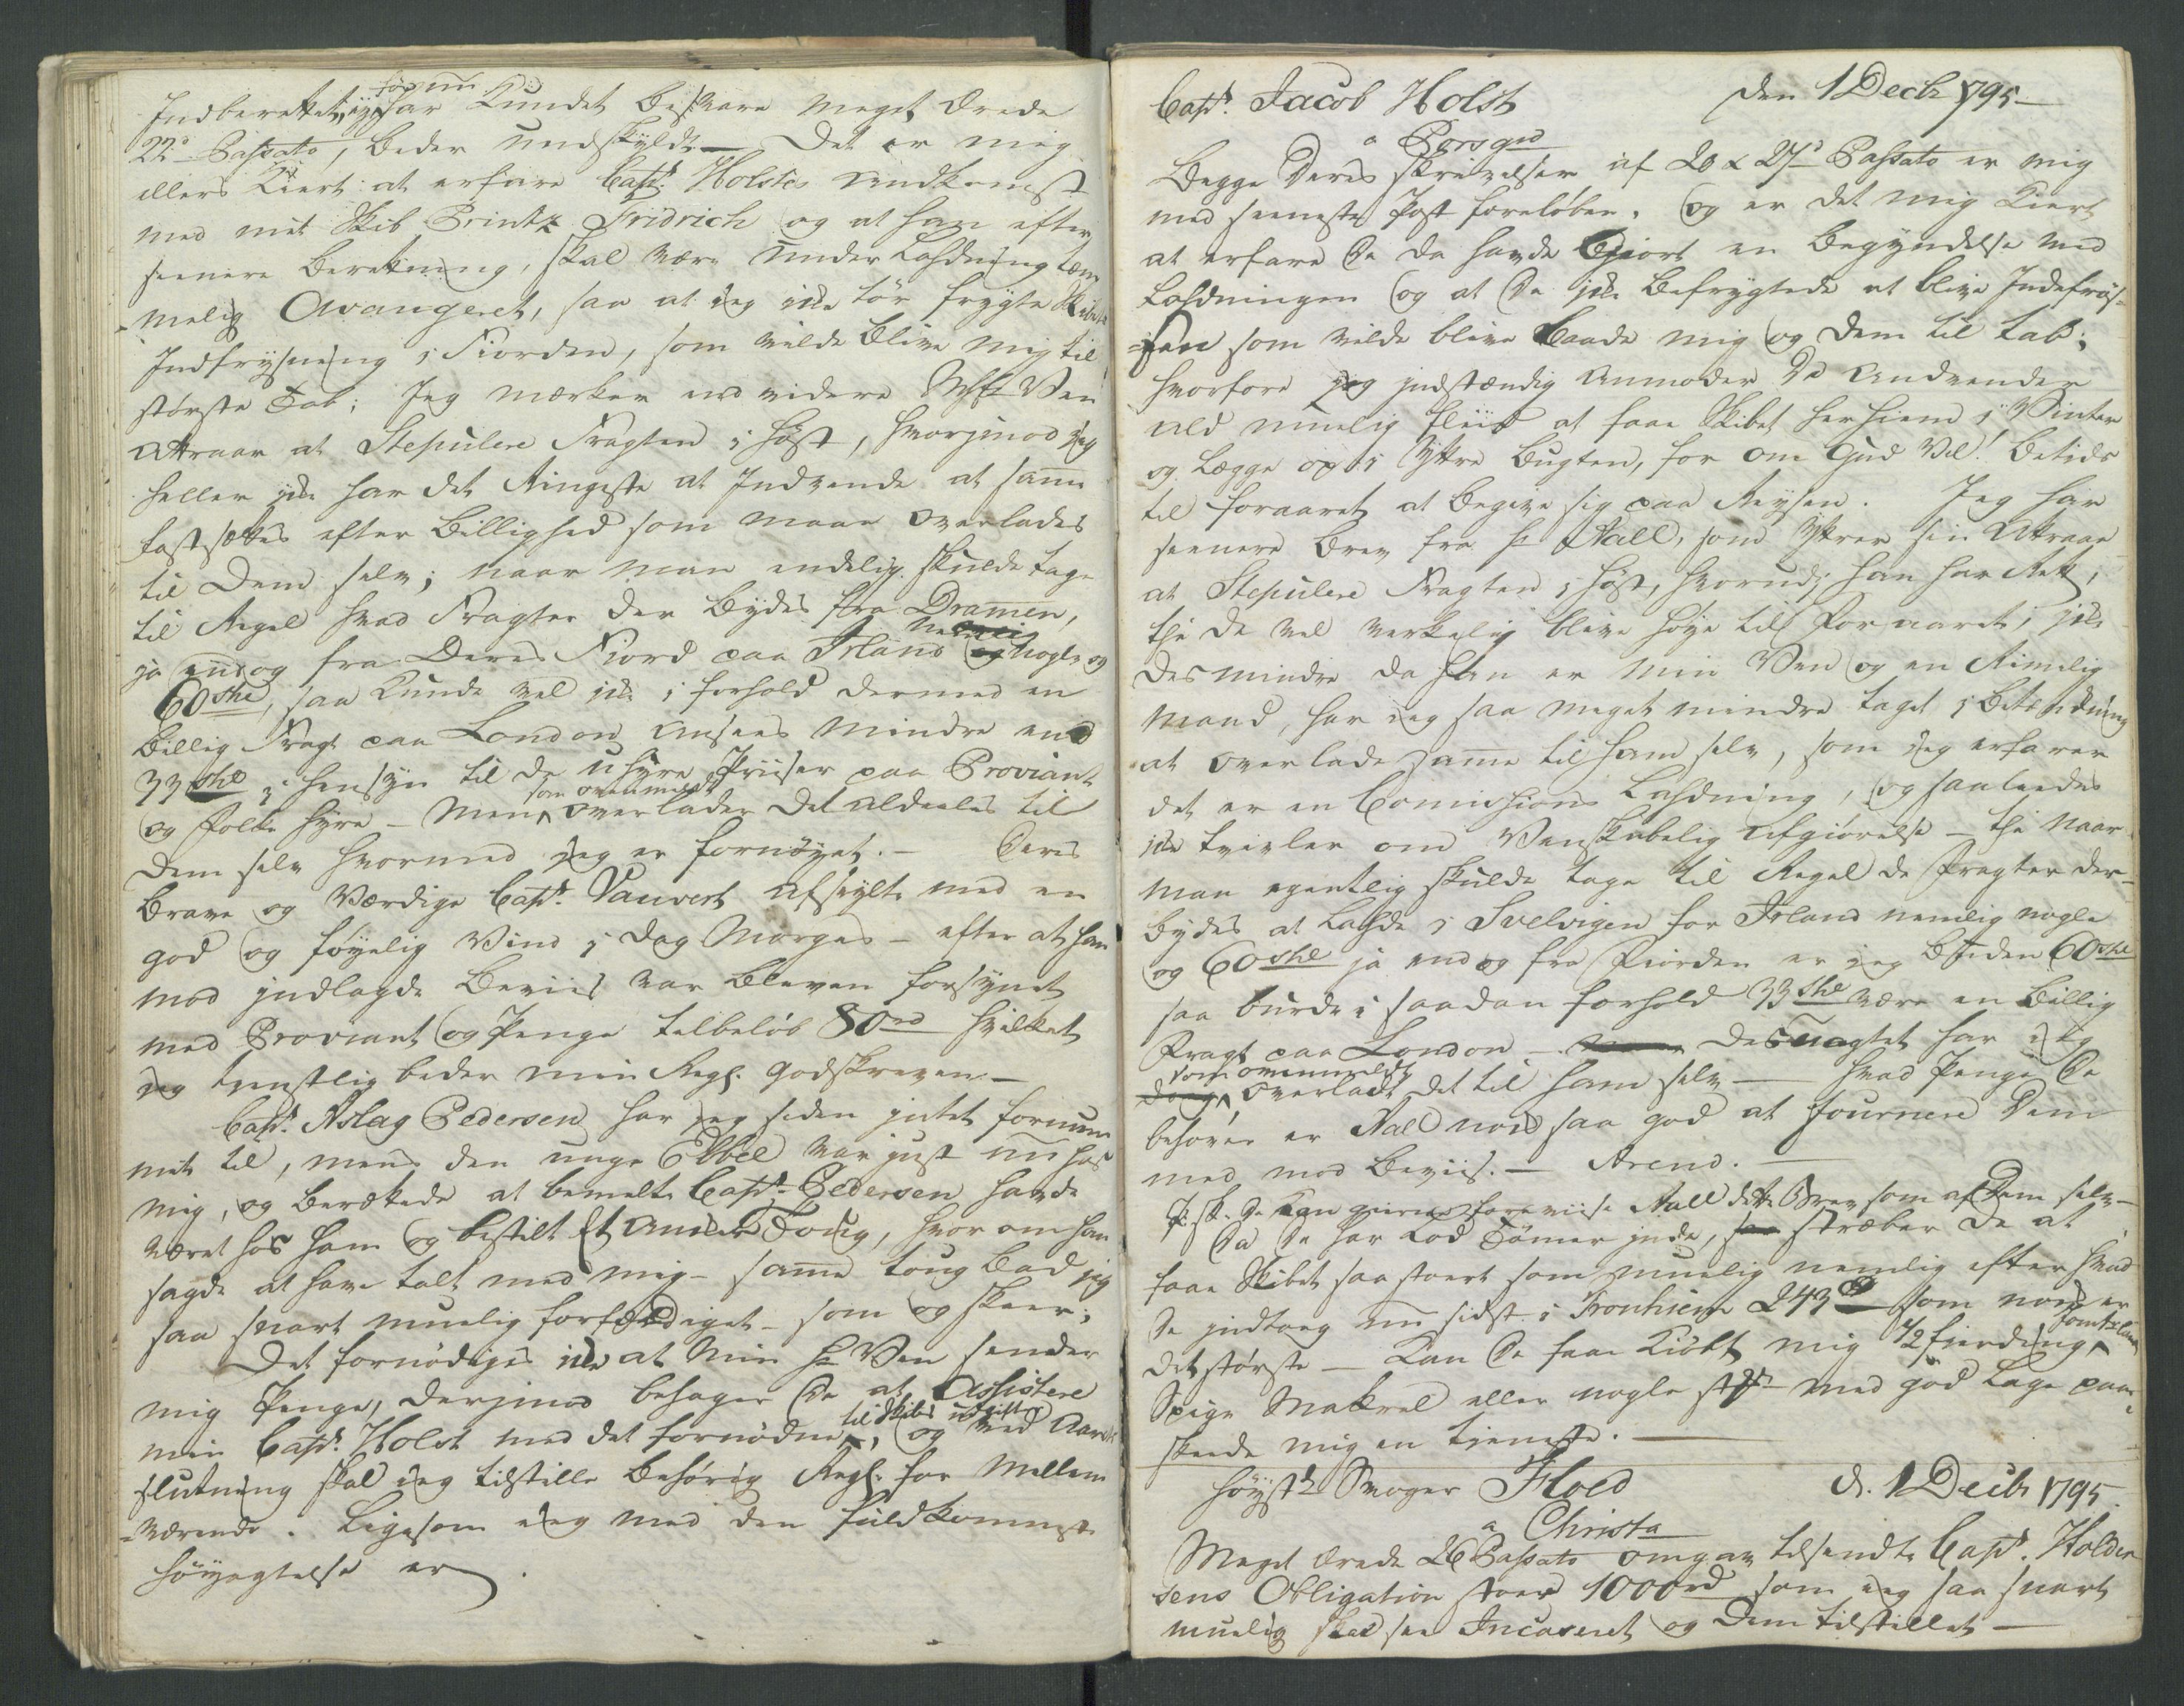 før nu
Indberettet, ey har Kundet besvare meget Ærede
22d Passato, beder undskyldt — Det er mig
ellers Kiert at erfare Capt. Holstes Andkomst
med mit Skib Printz Fridrich og at han efter
seenere Beretning, skal være under Ladning tem
melig Avangeret, saa at jeg icke tør frygte Skibets
Indfrysning i Fiorden, som vilde blive mig til
største Tab; Jeg mærker end videre Ven
attraar at Stepulere Fragten i Høst, hvorjmod jeg
heller icke har det Ringeste at Indvende at samme
fastsættes efter Billighed som maae overlades
til Dem selv; naar man endelig skulde tage
til Regel hvad Fragter der bydes fra Dramen,
ja endog fra Deres Fiord paa Irland nemlig nogle og
60 shl, saa Kunde vel icke i forhold dermed en
billig Fragt paa London ansees mindre end
33 shl i hensyn til de uhyre Priiser paa Proviant
og Folke Hyre — Men som ovenmeldt overlader det aldeeles til
Dem selv hvormed jeg er fornøyet. — Deres
brave og Værdige Capt. Vauvert afseylte med en
god og føyelig Vind i Dag Morges — efter at han
mod jndlagde Beviis var bleven forsynet
med Proviant og Penge tilbeløb 80 rd hvilket
jeg tienstlig beder min Regl. godskreven —
Capt. Aslag Pedersen har jeg siden jntet fornum
met til, mens den unge Ebbel var just nu hos
mig, og berættede at bemelte Capt. Pedersen havde
været hos ham og bestilt Et Anker Toug, hvor om han
sagde at have talt med mig — samme toug bad jeg
saa snart muelig forfærdiget — som og skeer;
Det fornødiges icke at Min Hr Ven sender
mig Penge, derjmod behager De at Assistere
min Capt. Holst med det fornødne til Skibs udgifter, og ved Aarets
slutning skal jeg tilstille behørig Regl. for Mellem
værende. Ligesom jeg med den fuldkomneste
Høyagtelse er

Capt. Jacob Holst den 1 Decbr 1795 —
a Porsgrd
Begge Deres skrivelser af 20 & 27d Passato er mig
med seeneste Post foreløben. og er det mig Kiert
at erfare De da havde Giort en Begyndelse med
Ladningen og at De icke befrygtede at blive Indefros-
sen som vilde blive baade mig og Dem til tab;
hvorfore jeg jndstændig anmoder De andvender
ald muelig Fliid at faae Skibet her hiem i Vinter
og Lægge op i Ytre Bugten, for om Gud Vil! betids
til foraaret at begive sig paa Reysen. Jeg har
seenere Brev fra Hr Aall, som Ytrer sin Attraae
at Stepulere Fragten i Høst, hvorudj han har Rett,
thi de vel verkelig blive Høye til Foraaret; icke
desmindre da han er min Ven og en Rimelig
Mand, har jeg saa meget mindre taget i betænkning
at overlade samme til ham selv, som jeg erfarer
det er en Comissions Ladning, og saaledes
icke tvivler om Venskabelig Afgiørelse — thi naar
man egentlig skulde tage til Regel de Fragter der
bydes at Lade i Svelvigen for Irland nemlig nogle
og 60 shl ja endog fra Fiorden er jeg buden 60 shl
saa burde i saadan forhold 33 shl være en billig
Fragt paa London — Desuagtet har jeg
som ovenmeldt overladt det til ham selv — Hvad Penge De
behøver er Aall nok saa god at fournere Dem
med mod Beviis. — Arend.
P. Sk. De Kan gierne foreviise Aall dette Brev som af Dem selv —
Da De har Lod Tømer jnde, stræber De at
faae Skibet saa stort som muelig nemlig efter hvad
De jndtoeg nu sidst i Tronhiem 243 som nok er
det største — Kan De faae Kiøbt mig 1/2 fierding
Spege Makrel eller nogle med god Lage paa
skeede mig en tjeneste. —
Høystr Svoger Floed d. 1 Decbr 1795.
a Christa
Meget Ærede 26 Passato omgav tilsendte Capt. Holder
sens Obligation stoer 1000 rd som jeg saa snart
muelig skal see Incaseret og Dem tilstillet —